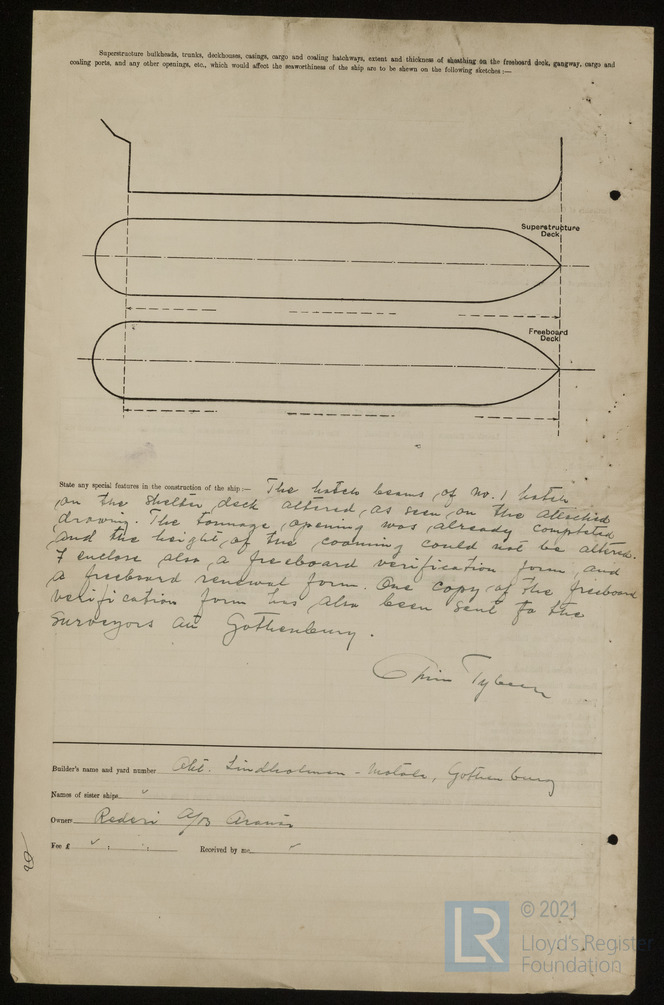 Superstructure bulkheads, trunks, deckhouses, casings, cargo and coaling hatchways, extent and thickness of sheathing on the freeboard deck, gangway, cargo and
coaling ports, and any other openings, etc., which would affect the seaworthiness of the ship are to be shewn on the following sketches:—
Superstructure
Deck
Freeboard
Deck
State any special features in the construction of the ship:— The hatch beams of No. 1 hatch
on the shelter deck altered, as seen on the attached
drawing. The tonnage opening was already completed
and the height of the coaming could not be altered.
I enclose also a freeboard verification form and
a freeboard renewal form. One copy of the freeboard
verification form has also been sent to the
Surveyors at Gothenburg.
Builder's name and yard number Akt. Lindholmen - Motala, Gothenburg
Names of sister ships
Owners Rederi A/B
Fee £ : : Received by me
LR
© 2021
Lloyd's Register
Foundation